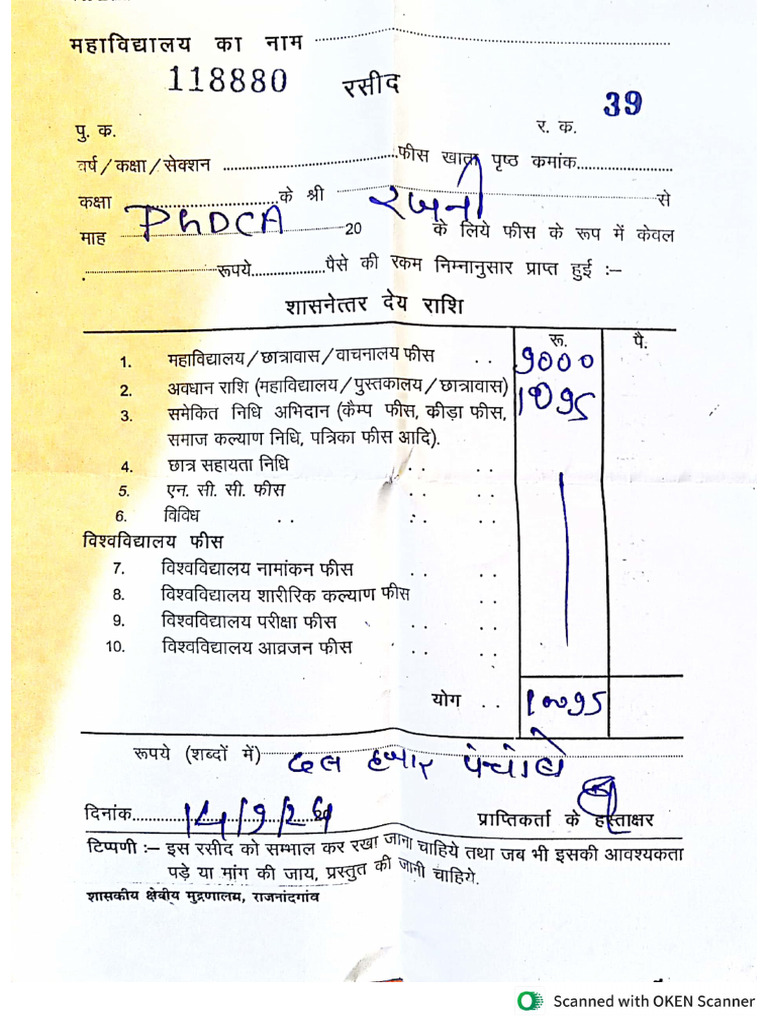 महाविद्यालय का नाम
118880 रसीद 39
पु. क. र. क.
वर्ष/कक्षा/सेक्शन फीस खाता पृष्ठ कमांक
कक्षा के श्री रजनी से
माह PhDCA 20 के लिये फीस के रूप में केवल
रूपये पैसे की रकम निम्नानुसार प्राप्त हुई :-
शासनेत्तर देय राशि
रू. पै.
1. महाविद्यालय/छात्रावास/वाचनालय फीस . . 9000
2. अवधान राशि (महाविद्यालय/पुस्तकालय/छात्रावास) 1095
3. समेकित निधि अभिदान (कैम्प फीस, कीडा फीस,
समाज कल्याण निधि, पत्रिका फीस आदि).
4. छात्र सहायता निधि . . . .
5. एन. सी. सी. फीस . . . .
6. विविध . . . . . .
विश्वविद्यालय फीस
7. विश्वविद्यालय नामांकन फीस . . . .
8. विश्वविद्यालय शारीरिक कल्याण फीस . .
9. विश्वविद्यालय परीक्षा फीस . . . .
10. विश्वविद्यालय आव्रजन फीस . . . .
योग . . 10095
रूपये (शब्दों में) दस हजार
दिनांक 14/9/24 प्राप्तिकर्ता के हस्ताक्षर
टिप्पणी :- इस रसीद को सम्भाल कर रखा जाना चाहिये तथा जब भी इसकी आवश्यकता
पड़े या मांग की जाय, प्रस्तुत की जानी चाहिये.
शासकीय क्षेत्रीय मुद्रणालय, राजनांदगांव
Scanned with OKEN Scanner